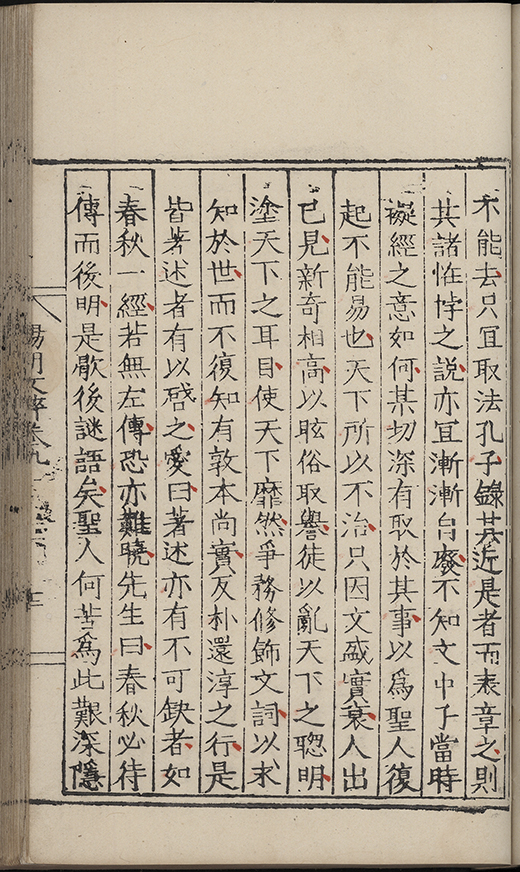 不能去只宜取法孔子錄其近是者而表章之則
其諸恠悖之說亦宜漸漸自廢不知文中子當時
擬經之意如何某切深有取於其事以爲聖人復
起不能易也天下所以不治只因文盛實衰人出
已見新奇相高以眩俗取譽徒以亂天下之聦明
塗天下之耳目使天下靡然爭務修飾文詞以求
知於世而不復知有敦本尚實反朴還淳之行是
皆著述者有以啓之愛曰著述亦有不可缺者如
春秋一經若無左傳恐亦難曉先生曰春秋必待
傳而後明是歇後謎語矣聖人何苦爲此艱深隱
陽明文粹卷九